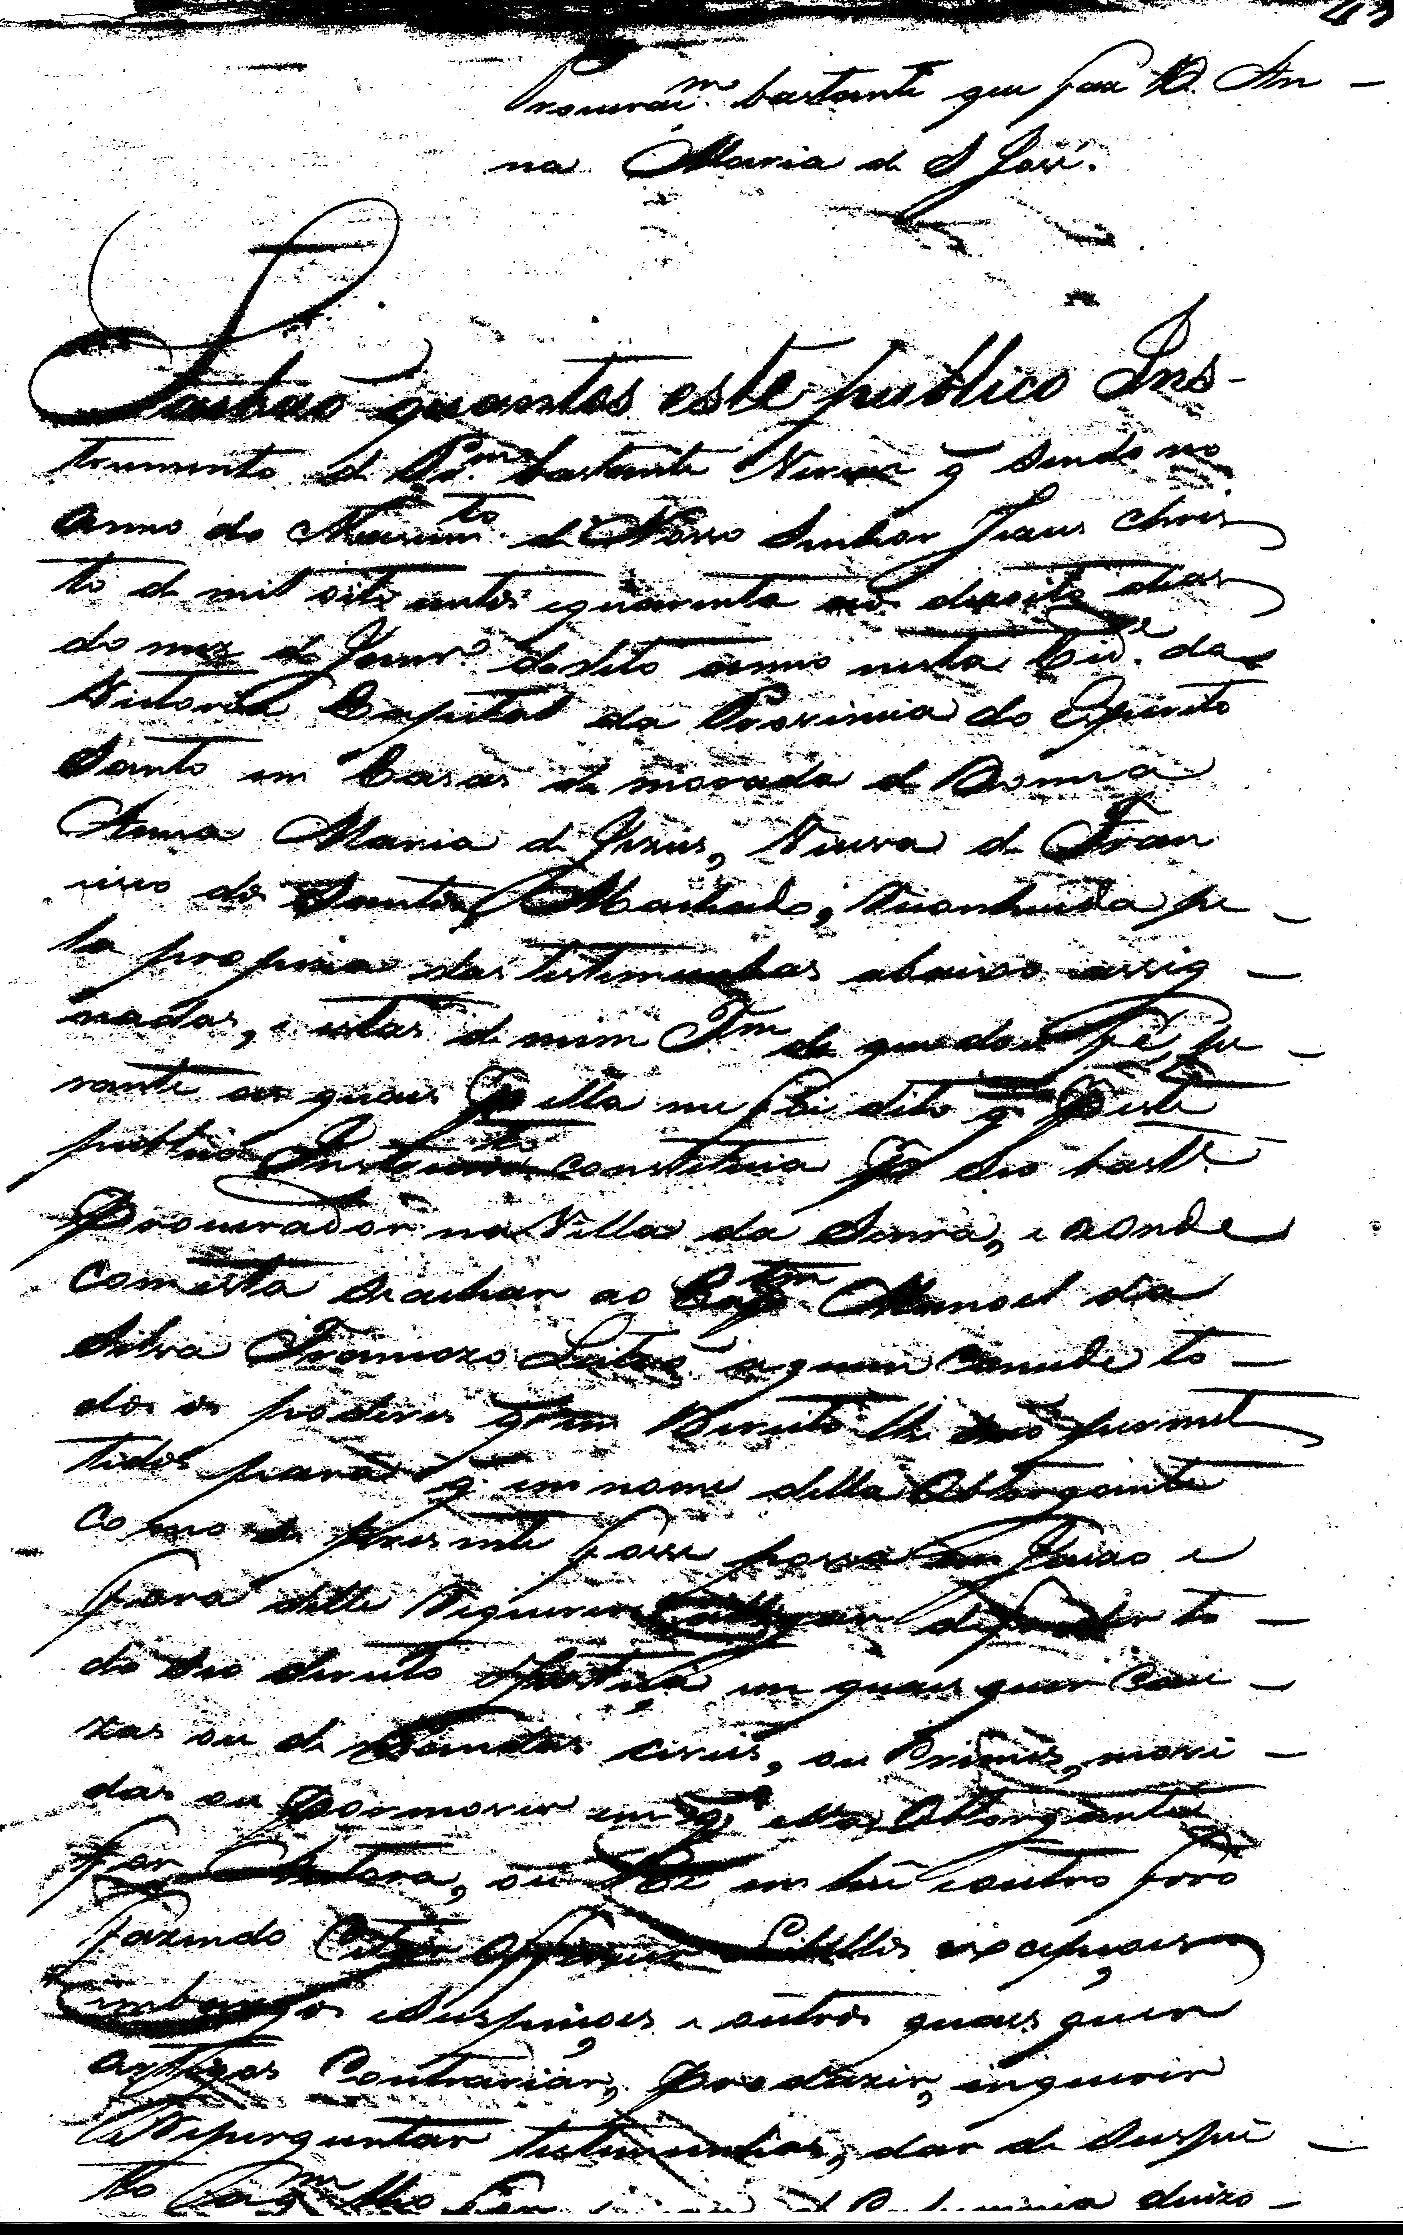 Procuraçm. bastante que faz D. An-
na Maria de S José.
Saibao quantos este publico Ins-
trumento de Pr.m bastante Virem q̃ sendo no
anno do Nascim.to de Nosso Senhor Jesus Chris
to de mil oito centos equarenta aos dezoito dias
do mez de Janr.o dodito anno nesta Cid.e da
Victoria Capital da Provincia do Espirito
Santo em Casas de morada de Donna
Anna Maria de Jesus, Viuva de Fran
cisco dos Santos Machado, reconhecida pe-
la propria das testemunhas abaixo assig-
nadas, e estas de mim Tm de que dou fé, pe-
rante as quais P ella me foi dito q̃ P este
publico Instrum.to constituia P seo bast.e
Procurador na Villa da Serra, e aonde
com esta se achar ao Cap.tm Manoel da
Silva Francozo Leitaõ a quem concede to-
dos os poderes q̃ em Direito lhe saõ permit
tidos para q̃ em nome della Obtorgante
como se prezente fosse possa em Juizo e
fora delle Requerer allegar defender to-
do seo direito eJustiça em quais quer Cau-
zas ou demandas civeis, ou Crimes, movi-
das ou Pormover em q̃ ella Obtorgante
for Autora, ou Ré em hũ e outro foro
fazendo Citar offerecer Libellos excepçoes
embargos e Suspeiçoes e outros quais quer
artigos Contrariar, Produzir, inquerir
e Reperguntar testemunhas, dar de Suspei-
to